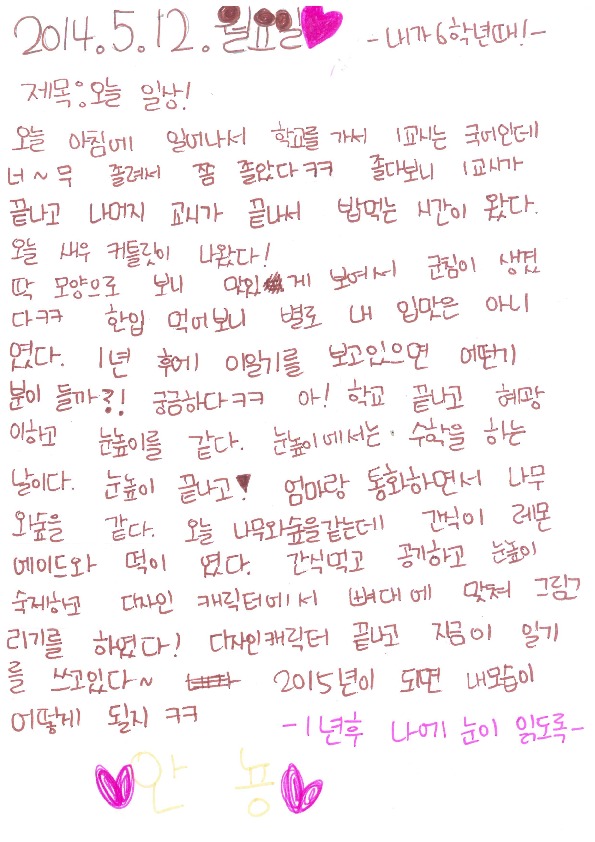 2014.5.12.월요일
-내가 6학년때!-
제목:오늘 일상!
오늘 아침에 일어나서 학교를 가서 1교시는 국어인데
너~무 졸려서 쫌 졸았다ㅋㅋ 졸다보니 1교시가
끝나고 나머지 교시가 끝나서 밥먹는 시간이 왔다.
오늘 새우 커틀릿이 나왔다!
딱 모양으로 보니 맛있게 보여서 군침이 생겼
다ㅋㅋ 한입 먹어보니 별로 내 입맛은 아니
였다. 1년 후에 이일기를 보고있으면 어떤기
분이 들까?! 궁금하다ㅋㅋ 아! 학교 끝나고 혜광
이하고 눈높이를 같다. 눈높이에서는 수학을 하는
날이다. 눈높이 끝나고! 엄마랑 통화하면서 나무
와숲을 같다. 오늘 나무와숲을같는데 간식이 레몬
에이드와 떡이 였다. 간식먹고 공기하고 눈높이
숙제하고 디자인 캐릭터에서 뼈대에 맞춰 그림그
리기를 하였다! 디자인캐릭터 끝나고 지금이 일기
를 쓰고있다~ 2015년이 되면 내모습이
어떻게 될지 ㅋㅋ
-1년후 나에 눈이 읽도록-
안뇽